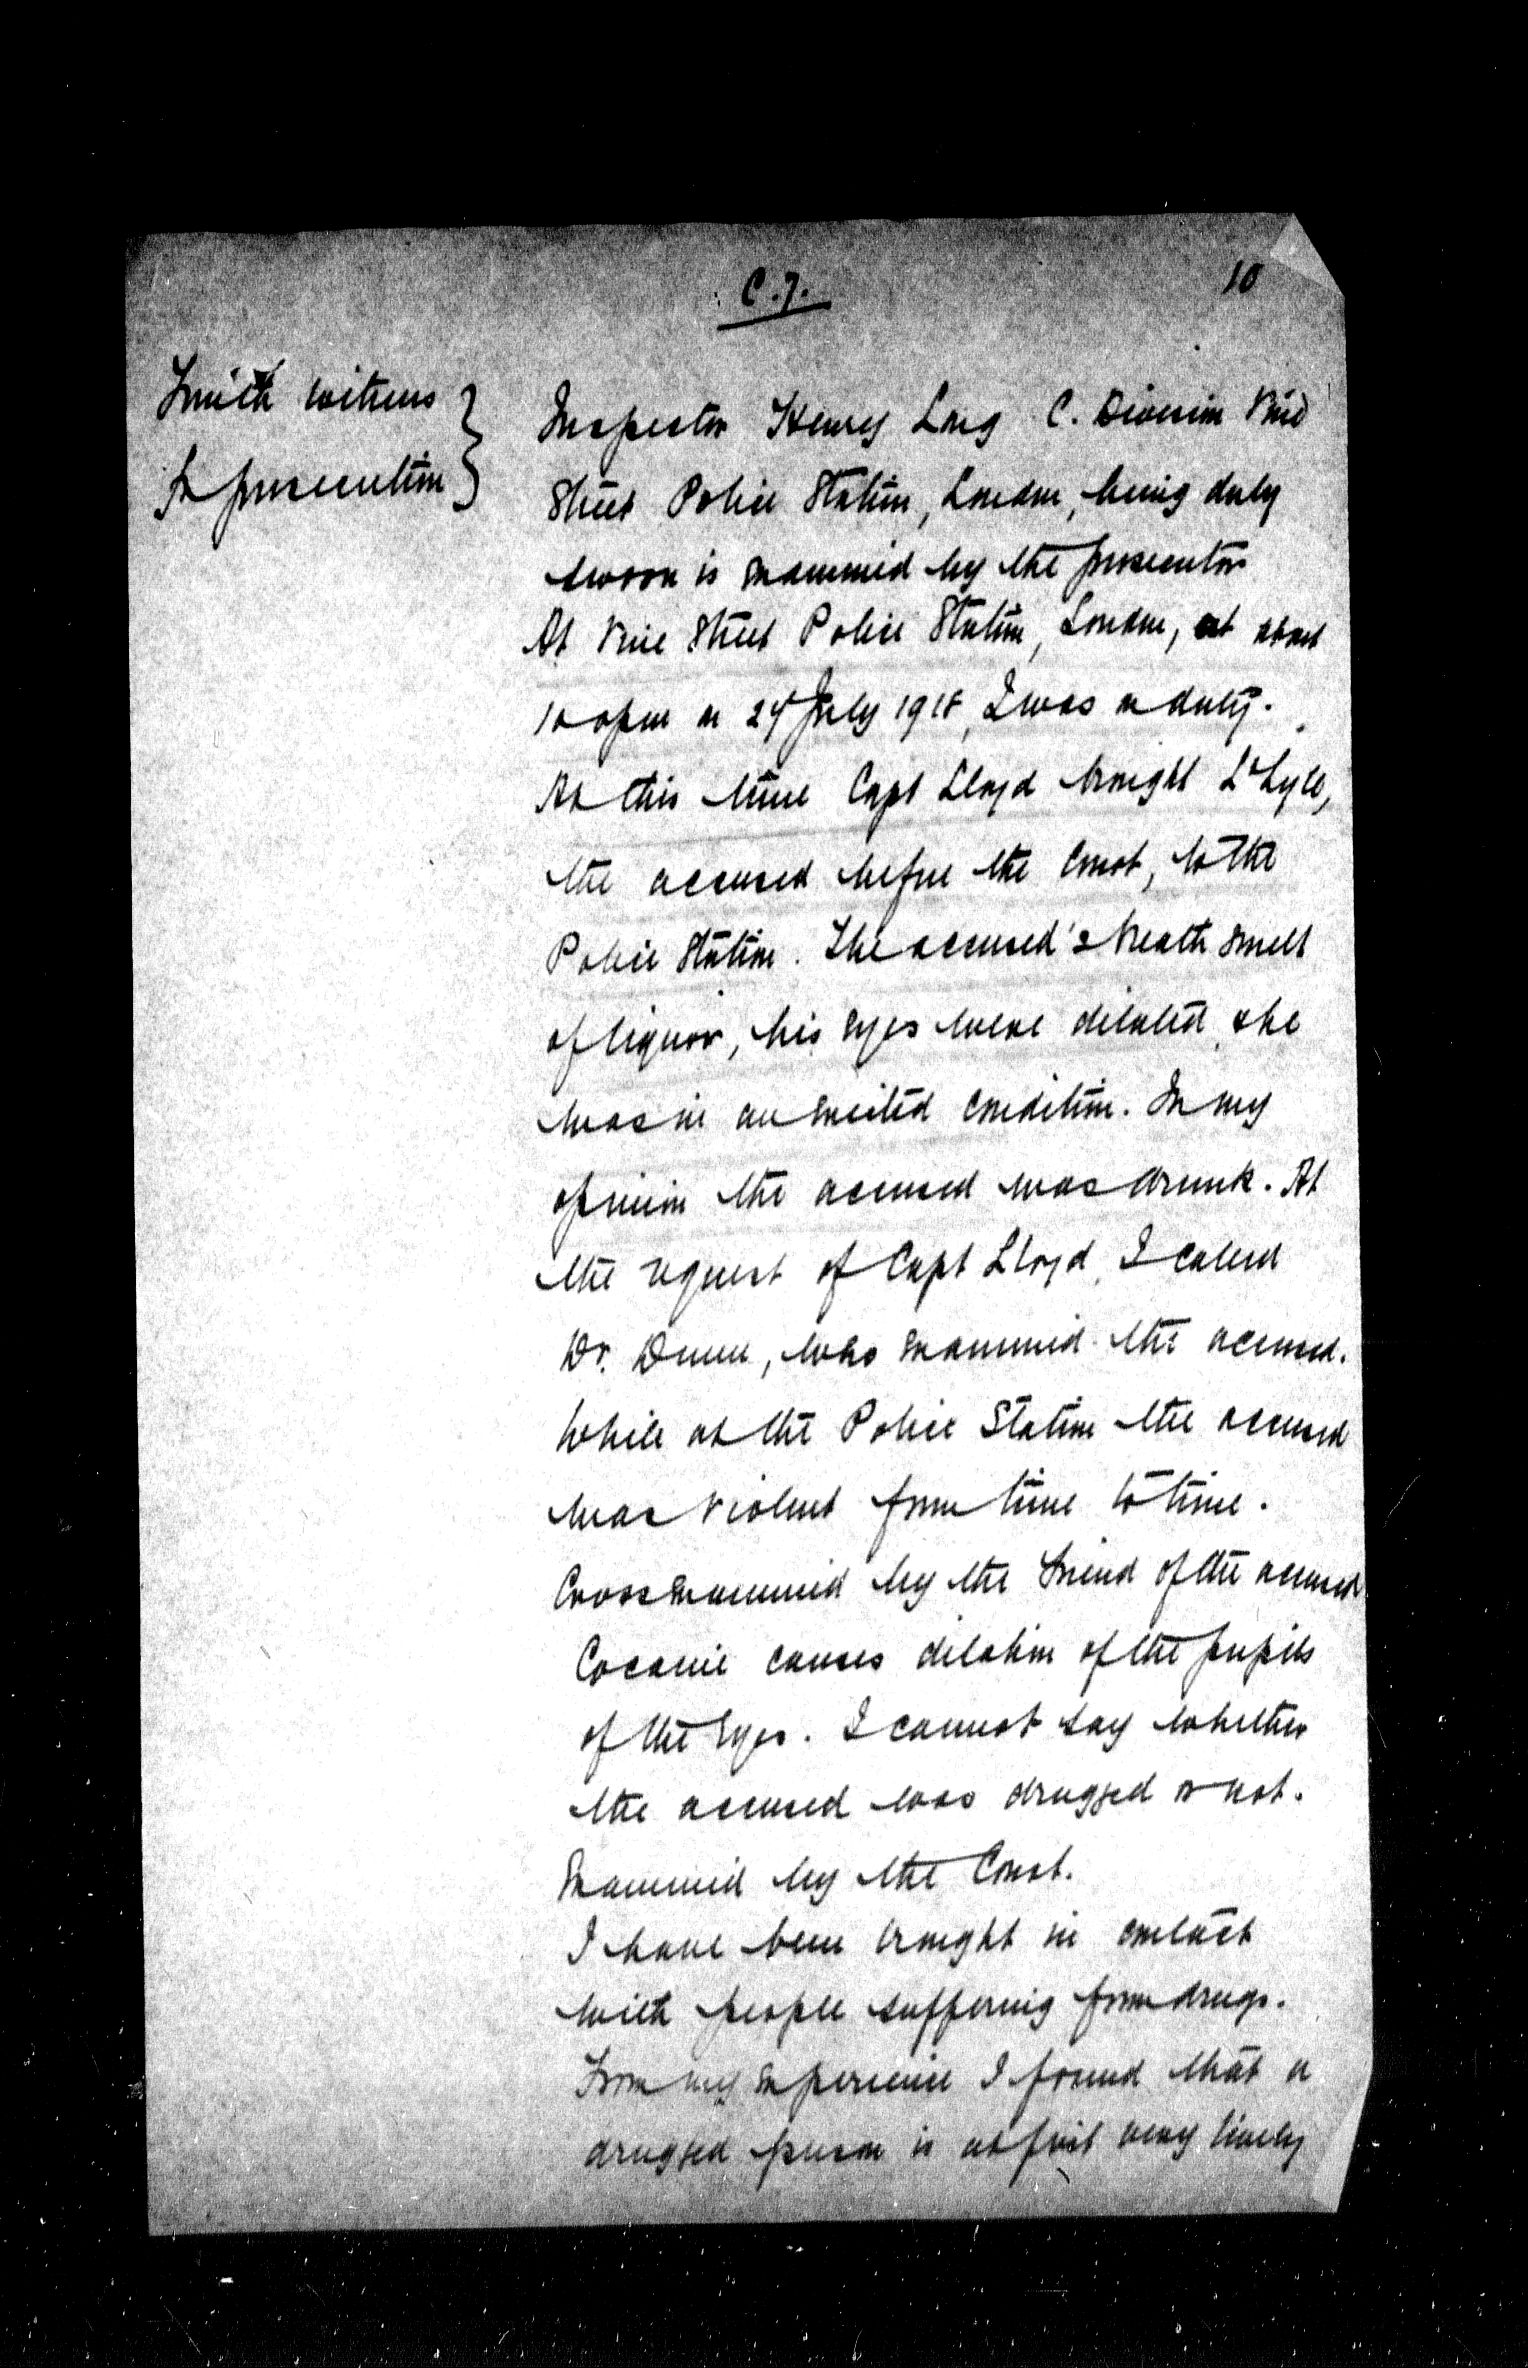 C.7.
10
Fourth witness
for prosecution
Inspector Henry Long C. Division Vine
Street Police Station, London, being duly
sworn is examined by the prosecutor
At Vine Street Police Station, London, at about
10 opm on 24 July 1918, I was on duty.
At this time Capt Lloyd brought Lt Lyle,
the accused before the Court, to the
Police Station. The accused's breath smelt
of liquor, his eyes were dilated & he
was in an excited condition. In my
opinion the accused was drunk. At
the request of Capt Lloyd I called
Dr. Dunne, who examined the accused.
While at the Police Station the accused
was violent from time to time.
Cross examined by the friend of the accused
Cocaine causes dilation of the pupils
of the eyes. I cannot say whether
the accused was drugged or not.
Examined by the Court.
I have been brought in contact
with people suffering from drugs.
From my experience I found that a
drugged person is at first very lively